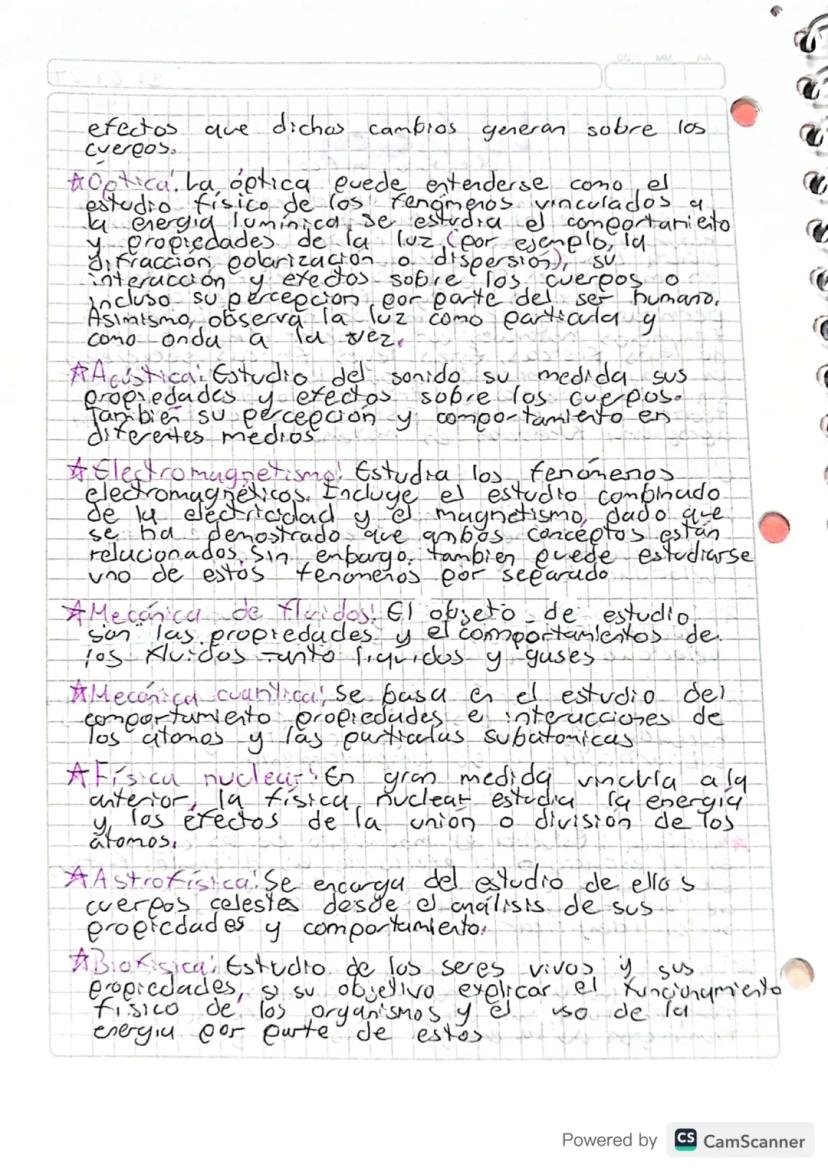 DD MM AA
efectos que dichos cambios generan sobre los
cuerpos.
☆Óptica: La óptica puede entenderse como el
estudio físico de los fenómenos vinculados a
la energía lumínica, se estudia el comportamiento
y propiedades de la luz (por ejemplo, la
difracción, polarización o dispersión), su
interacción y efectos sobre los cuerpos o
incluso su percepcion por parte del ser humano.
Asimismo, observa la luz como particula y
como onda a la vez.
☆Acústica: Estudio del sonido su medida sus
propiedades y efectos sobre los cuerpos.
También su percepcion y comportamiento en
diferentes medios
☆Electromagnetismo: Estudia los fenómenos
electromagnéticos. Incluye el estudio combinado
de la electricidad y el magnetismo, dado que
se ha demostrado que ambos conceptos están
relacionados. Sin embargo, tambien puede estudiarse
uno de estos fenómenos por separado
☆Mecánica de fluidos: El objeto de estudio
son las propiedades y el comportamientos de
los fluidos tanto liquidos y gases
☆Mecánica cuantica: Se basa en el estudio del
comportamiento propiedades e interacciones de
los átomos y las particulas subatomicas
☆Física nuclear: En gran medida vinclula a la
anterior, la física nuclear estudia la energía
y los efectos de la unión o división de los
átomos.
☆Astrofísica: Se encarga del estudio de ellos
cuerpos celestes desde el análisis de sus
propiedades y comportamiento.
☆Biofisica: Estudio de los seres vivos y sus
propiedades, si su objetivo explicar el funcionamiento
físico de los organismos y el uso de la
energia por parte de estos
Powered by CS CamScanner